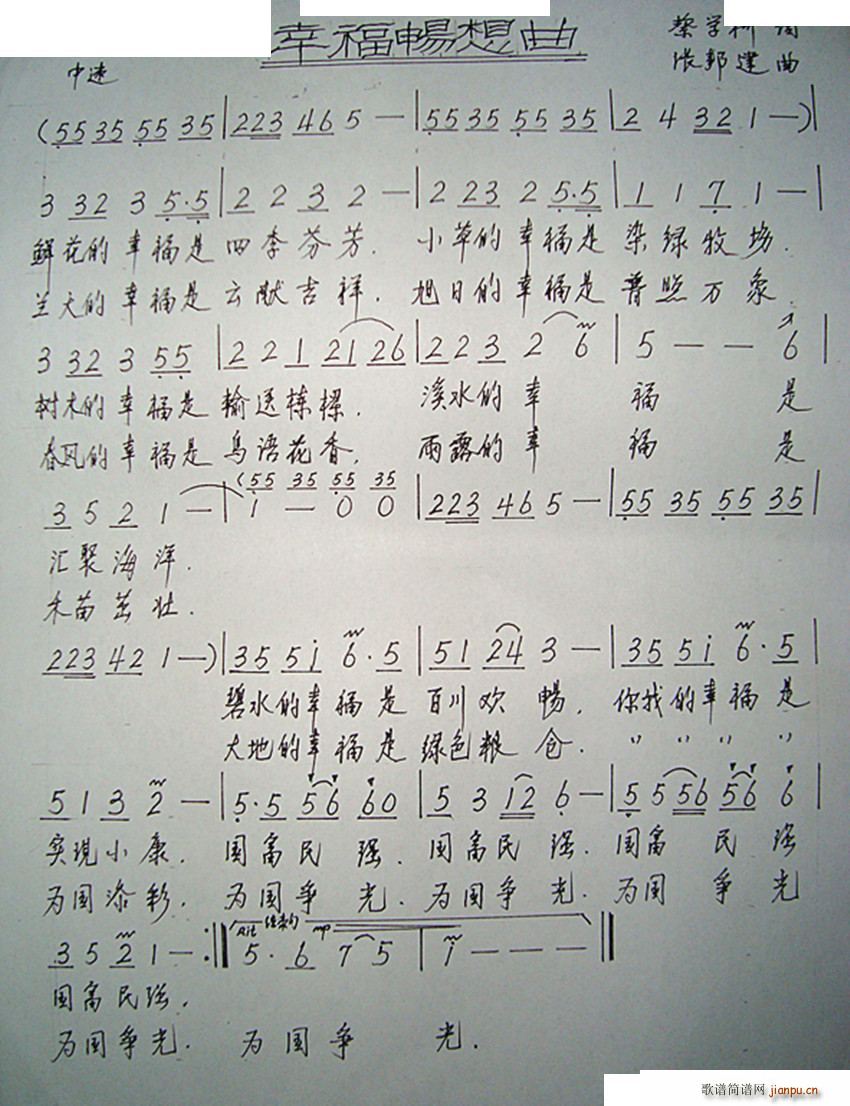 幸福暢想曲
蔡学
张邦建 曲
中速
(55 35 55 35 | 223 46 5 — | 55 35 55 35 | 2 4 32 1 —) |
3 32 3 5·5 | 2 2 3 2 — | 2 23 2 5·5 | 1 1 7 1 — |
鲜花的幸福是四季芬芳. 小草的幸福是染绿牧场.
兰天的幸福是云献吉祥. 旭日的幸福是普照万象.
3 32 3 55 | 2 2 1 21 26 | 2 2 3 2 6 | 5 — — 6 |
树木的幸福是输送栋樑. 溪水的幸福是
春风的幸福是鸟语花香, 雨露的幸福是
(55 35 55 35
3 5 2 1 — | 1 — 0 0 | 223 46 5 — | 55 35 55 35 |
汇聚海洋.
禾苗茁壮.
223 42 1 —) | 35 5i 6·5 | 51 24 3 — | 35 5i 6·5 |
碧水的幸福是百川欢畅, 你找的幸福是
大地的幸福是绿色粮仓. " " " "
5 1 3 2 — | 5·5 56 60 | 5 3 12 6 — | 5 5 56 56 6 |
实现小康. 国富民强. 国富民强. 国富民强
为国添彩. 为国争光. 为国争光. 为国争光
Rit 结束句 mp
3 5 2 1 — :‖ 5· 6 7 5 | i — — — ‖
国富民强.
为国争光. 为国争光.
歌谱简谱网 jianpu.cn